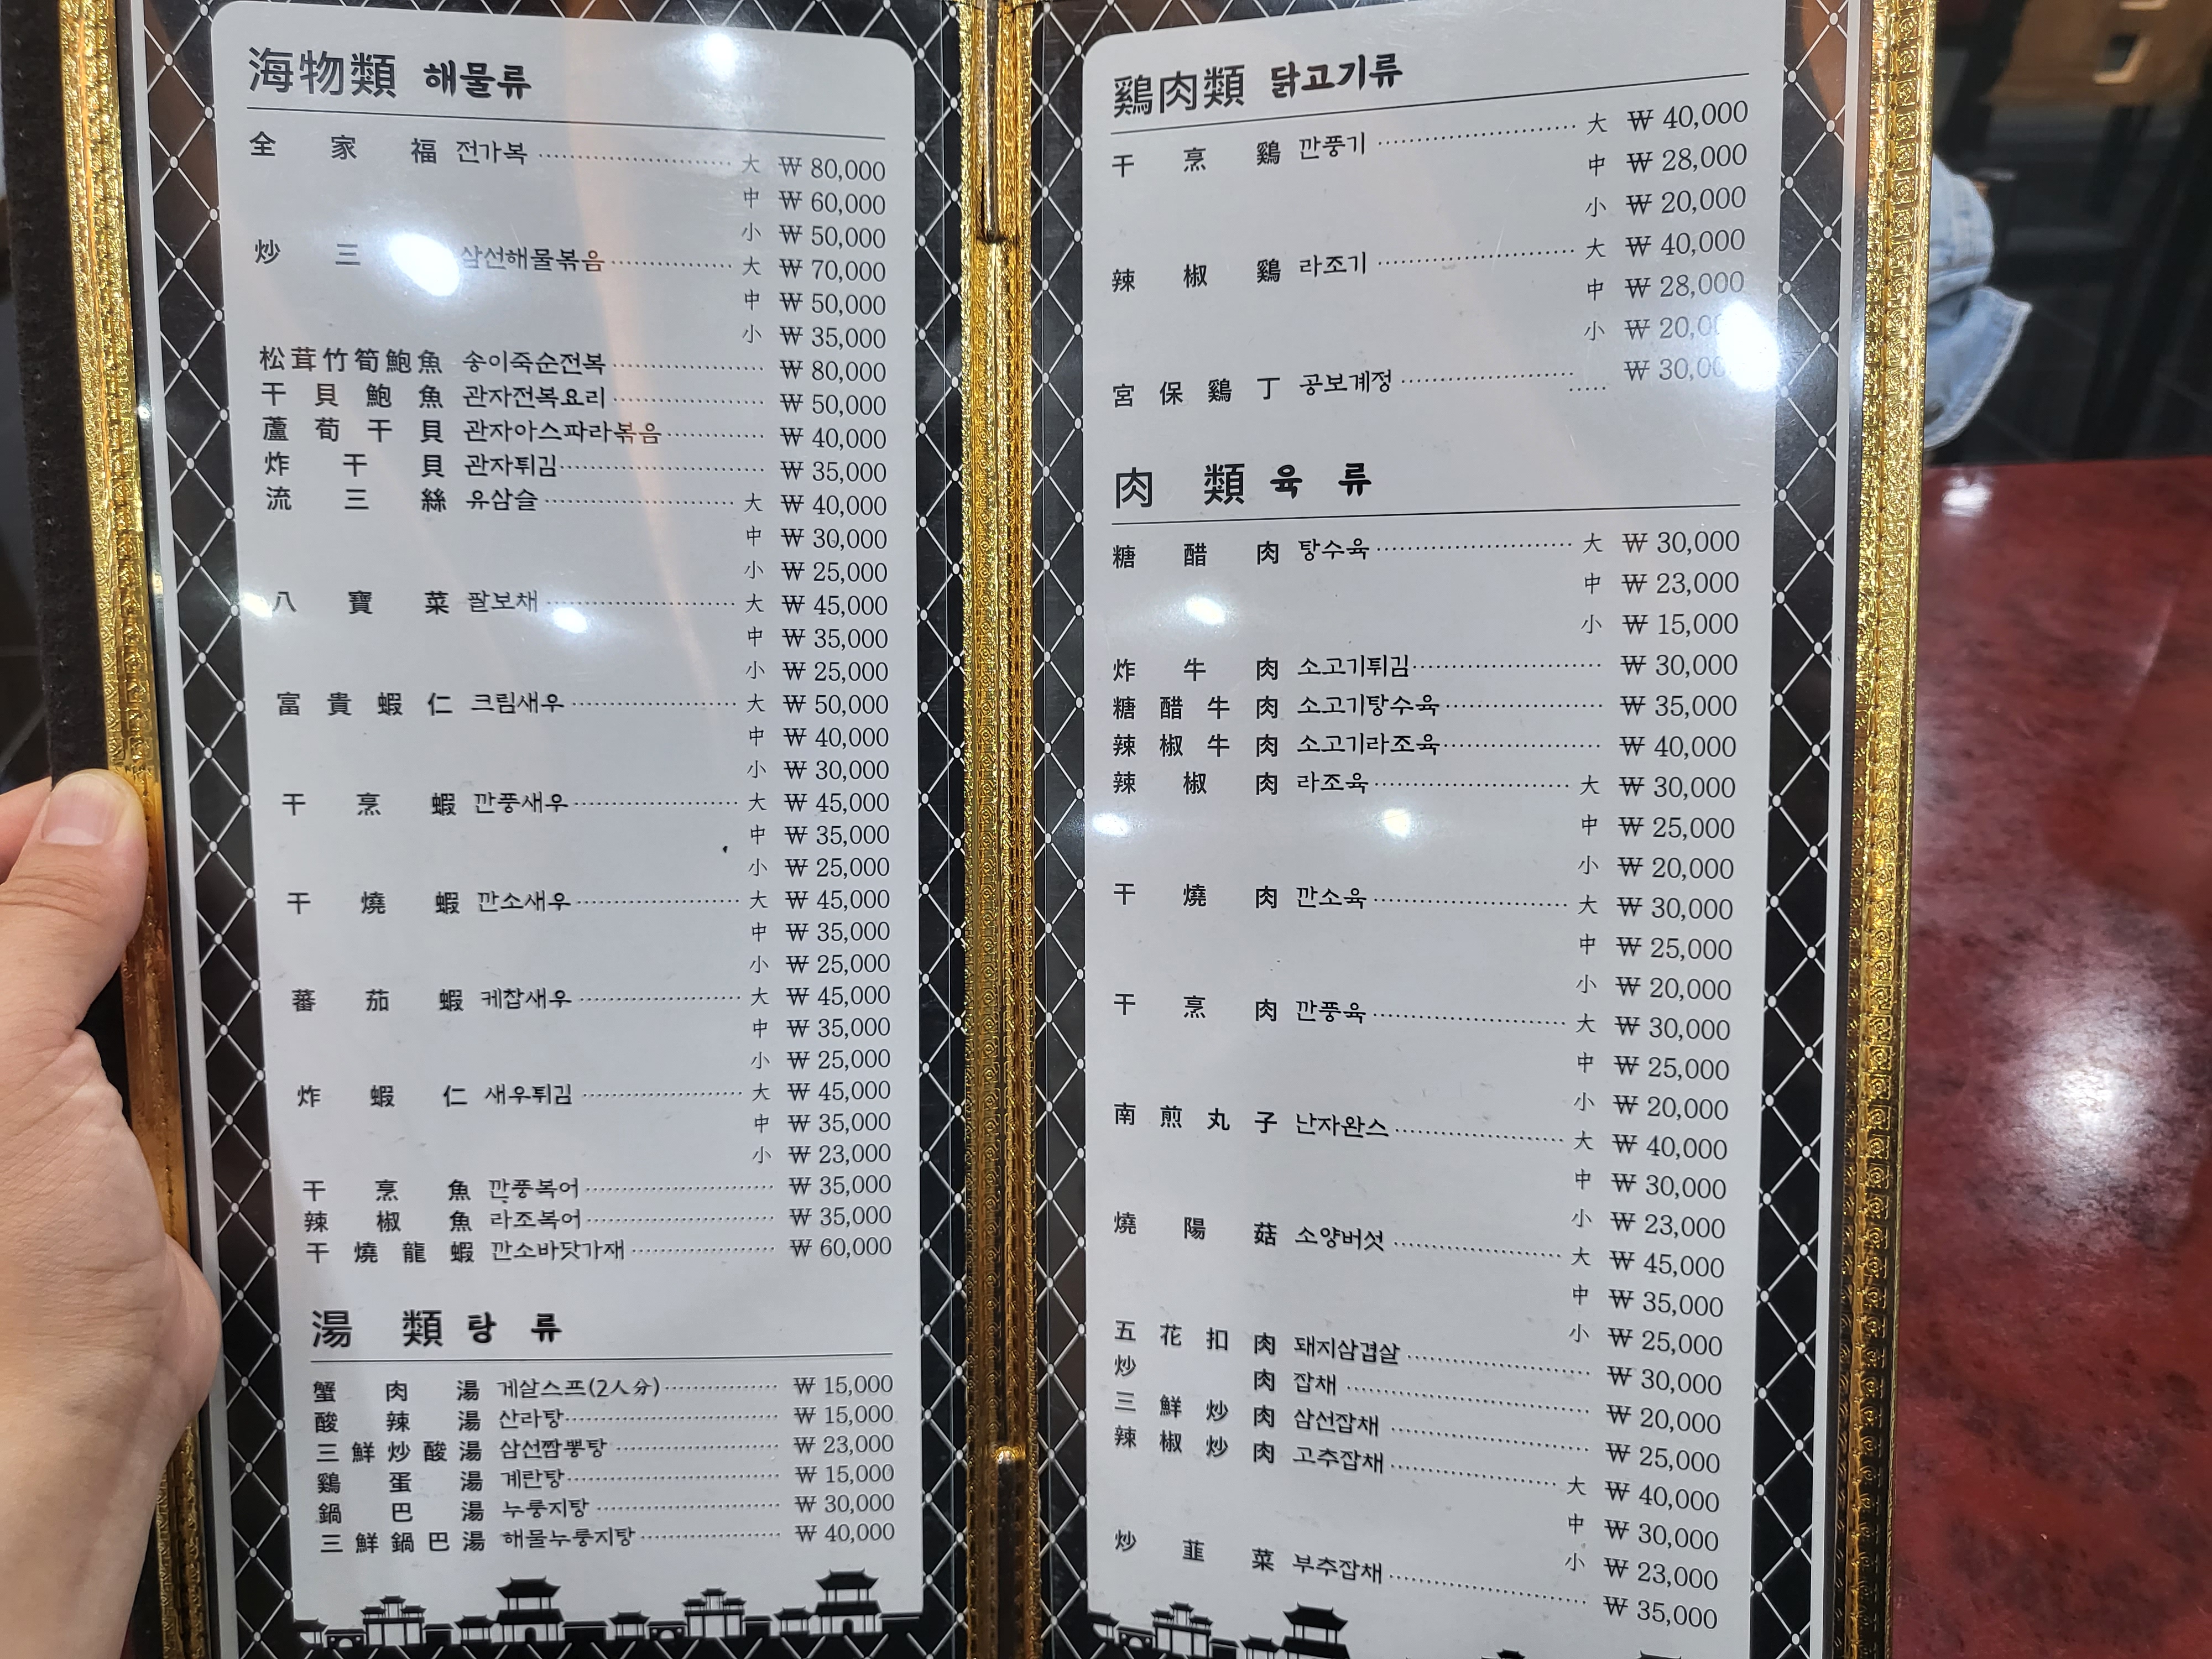 海物類 해물류
全家福 전가복 大 ₩ 80,000
中 ₩ 60,000
小 ₩ 50,000
炒三 삼선해물볶음 大 ₩ 70,000
中 ₩ 50,000
小 ₩ 35,000
松茸竹筍鮑魚 송이죽순전복 ₩ 80,000
干貝鮑魚 관자전복요리 ₩ 50,000
蘆荀干貝 관자아스파라볶음 ₩ 40,000
炸干貝 관자튀김 ₩ 35,000
流三絲 유삼슬 大 ₩ 40,000
中 ₩ 30,000
小 ₩ 25,000
八寶菜 팔보채 大 ₩ 45,000
中 ₩ 35,000
小 ₩ 25,000
富貴蝦仁 크림새우 大 ₩ 50,000
中 ₩ 40,000
小 ₩ 30,000
干烹蝦 깐풍새우 大 ₩ 45,000
中 ₩ 35,000
小 ₩ 25,000
干燒蝦 깐소새우 大 ₩ 45,000
中 ₩ 35,000
小 ₩ 25,000
蕃茄蝦 케찹새우 大 ₩ 45,000
中 ₩ 35,000
小 ₩ 25,000
炸蝦仁 새우튀김 大 ₩ 45,000
中 ₩ 35,000
小 ₩ 23,000
干烹魚 깐풍복어 ₩ 35,000
辣椒魚 라조복어 ₩ 35,000
干燒龍蝦 깐소바닷가재 ₩ 60,000
湯類 탕류
蟹肉湯 게살스프(2人分) ₩ 15,000
酸辣湯 산라탕 ₩ 15,000
三鮮炒酸湯 삼선짬뽕탕 ₩ 23,000
鷄蛋湯 계란탕 ₩ 15,000
鍋巴湯 누룽지탕 ₩ 30,000
三鮮鍋巴湯 해물누룽지탕 ₩ 40,000
鷄肉類 닭고기류
干烹鷄 깐풍기 大 ₩ 40,000
中 ₩ 28,000
小 ₩ 20,000
辣椒鷄 라조기 大 ₩ 40,000
中 ₩ 28,000
小 ₩
宮保鷄丁 공보계정 ₩
肉類 육류
糖醋肉 탕수육 大 ₩ 30,000
中 ₩ 23,000
小 ₩ 15,000
炸牛肉 소고기튀김 ₩ 30,000
糖醋牛肉 소고기탕수육 ₩ 35,000
辣椒牛肉 소고기라조육 ₩ 40,000
辣椒肉 라조육 大 ₩ 30,000
中 ₩ 25,000
小 ₩ 20,000
干燒肉 깐소육 大 ₩ 30,000
中 ₩ 25,000
小 ₩ 20,000
干烹肉 깐풍육 大 ₩ 30,000
中 ₩ 25,000
小 ₩ 20,000
南煎丸子 난자완스 大 ₩ 40,000
中 ₩ 30,000
小 ₩ 23,000
燒陽菇 소양버섯 大 ₩ 45,000
中 ₩ 35,000
小 ₩ 25,000
五花扣肉 돼지삼겹살 ₩ 30,000
炒肉 잡채 ₩ 20,000
三鮮炒肉 삼선잡채 ₩ 25,000
辣椒炒肉 고추잡채 大 ₩ 40,000
中 ₩ 30,000
小 ₩ 23,000
炒韮菜 부추잡채 ₩ 35,000